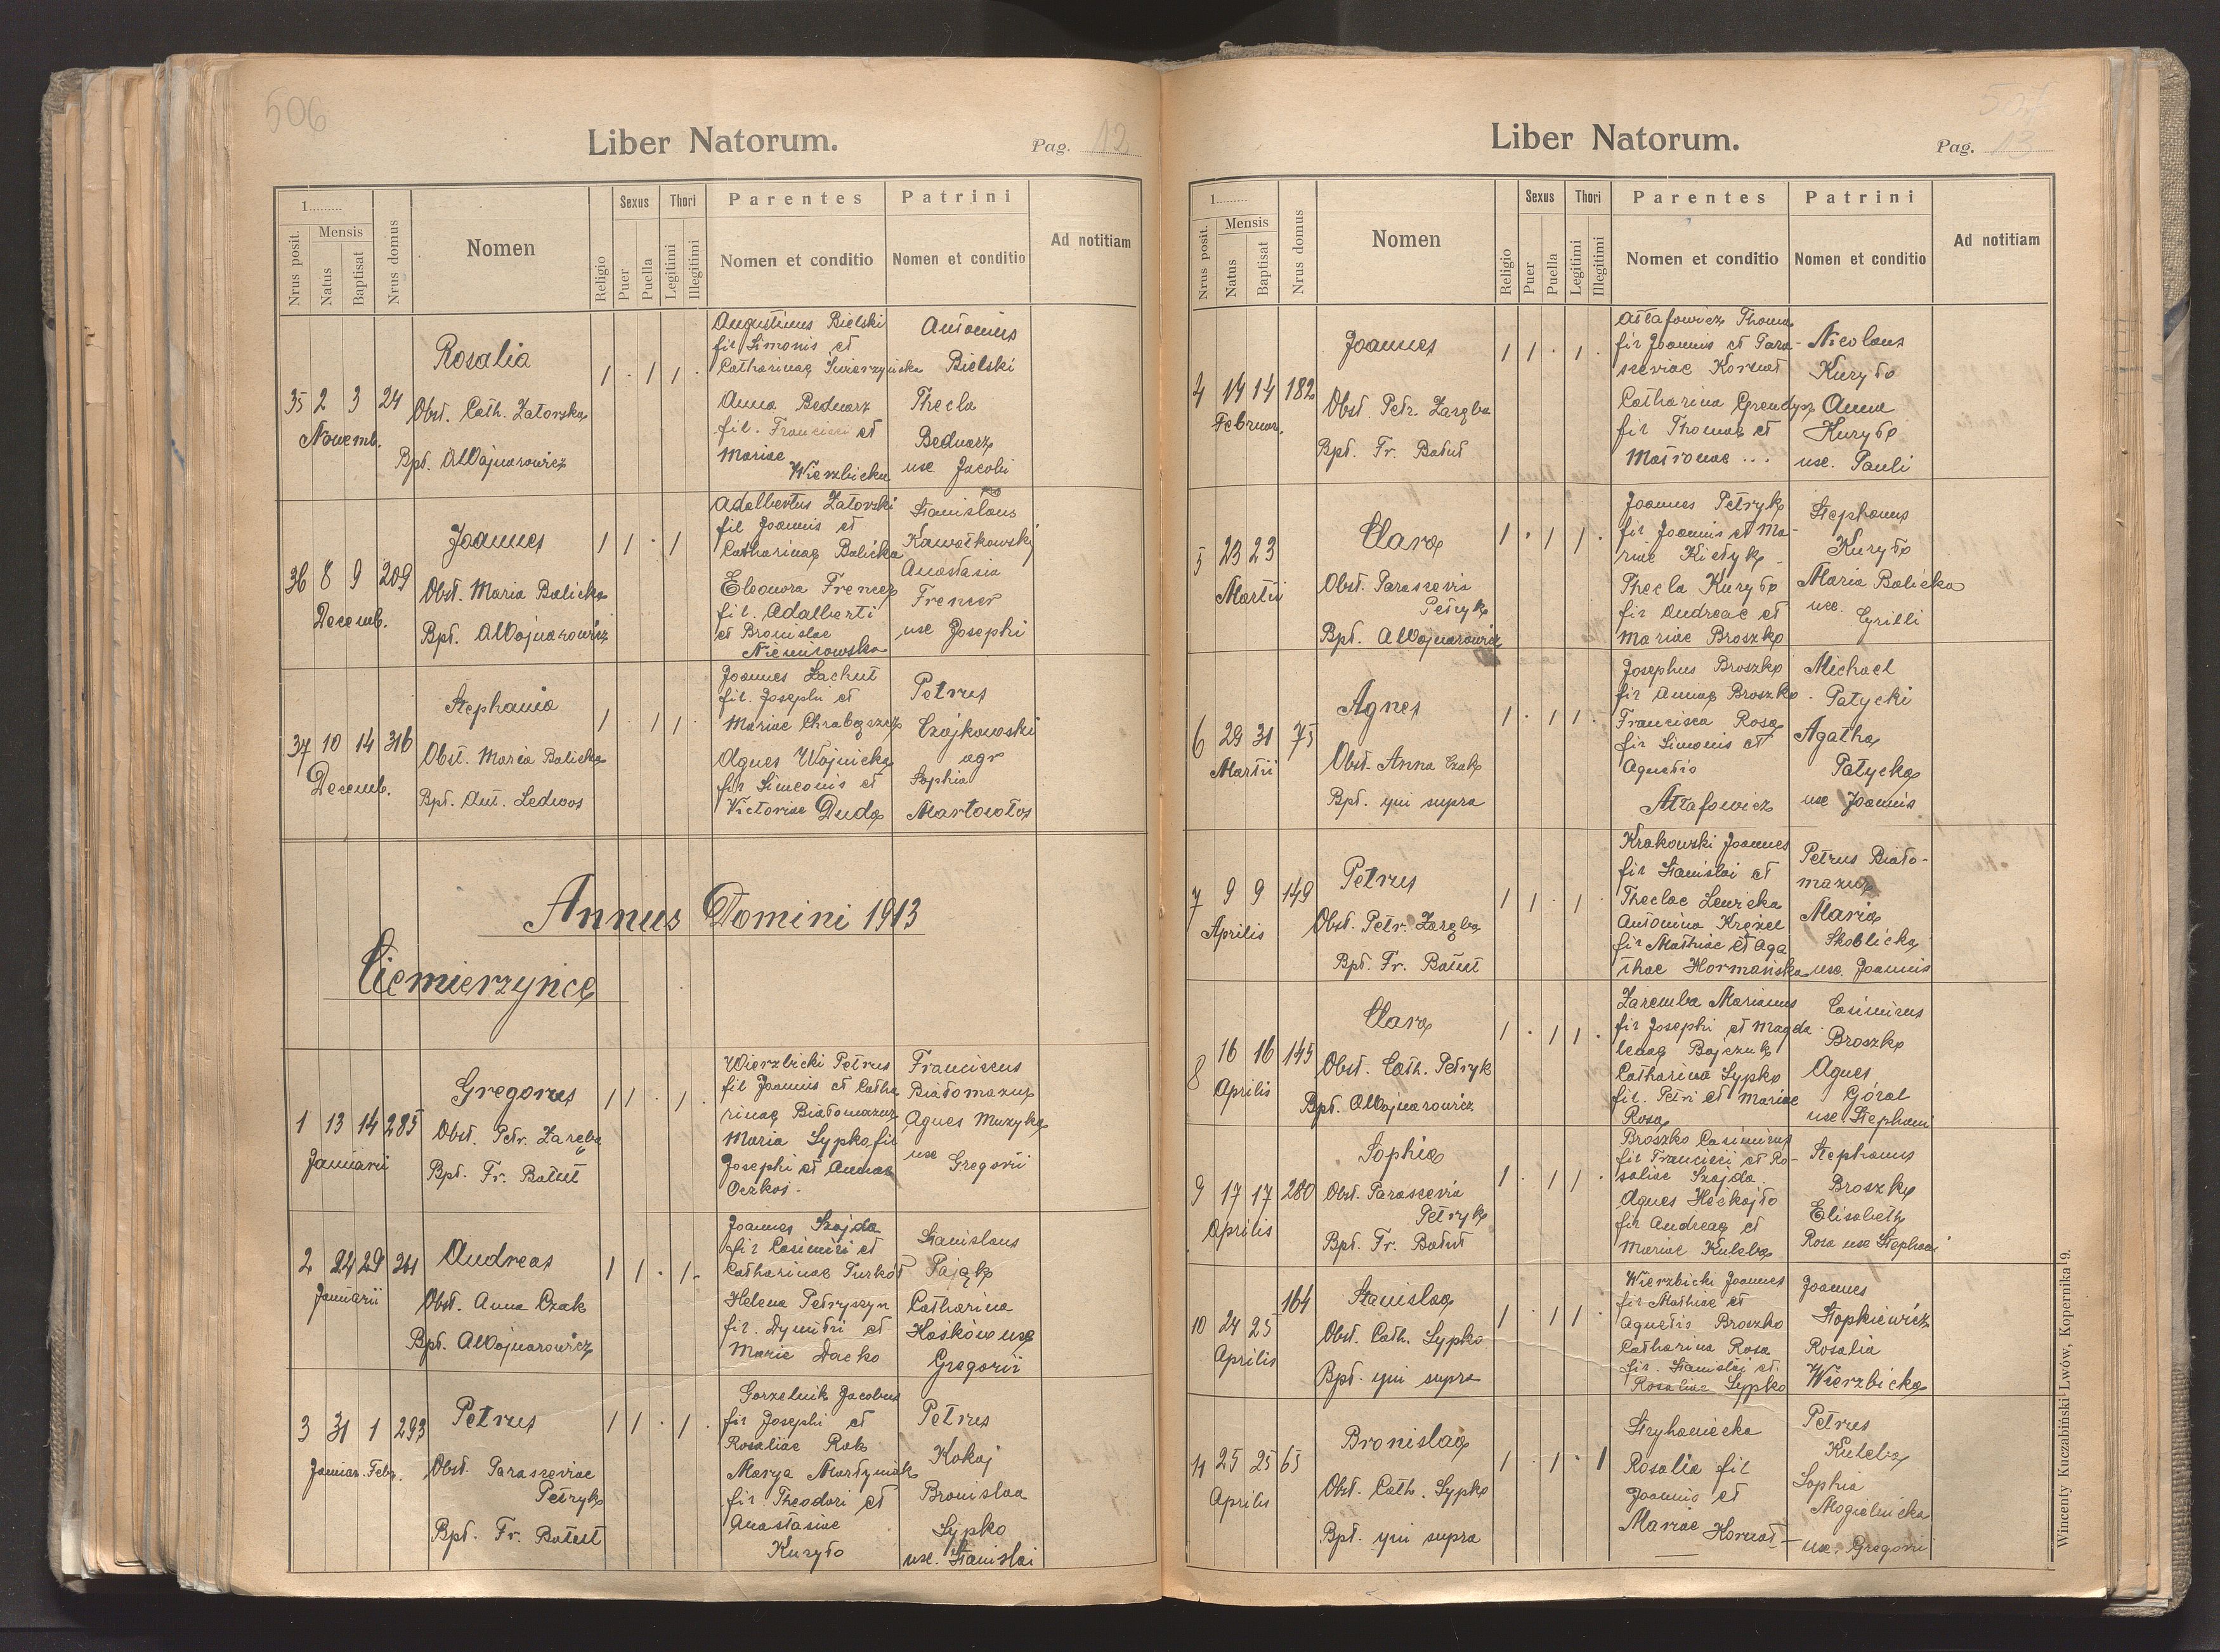 506
Liber Natorum.
Pag. 12
1
Nrus posit.
Mensis
Natus
Baptisat
Nrus domus
Nomen
Religio
Sexus
Puer
Puella
Thori
Legitimi
Illegitimi
Parentes
Nomen et conditio
Patrini
Nomen et conditio
Ad notitiam
35 2 3 24
Novemb.
Rosalia
Obst. Cath. Zatorska
Bpt. AWojnarowicz
1 . 1 1 .
Augustinus Bielski
fil Simonis et
Catharinae Świerzyńska
Anna Bednarz
fil. Francisci et
Mariae
Wierzbicka
Antonius
Bielski
Thecla
Bednarz
uxe Jacobi
36 8 9 209
Decemb.
Joannes
Obst. Maria Balicka
Bpt. AWojnarowicz
1 1 . 1
Adalbertus Zatorski
fil Joannis et
Catharinae Balicka
Eleonora Frencer
fil. Adalberti
et Bronislae
Niemirowska
Stanislaus
Kawałkowski
Anastasia
Frencer
uxe Josephi
37 10 14 316
Decemb.
Stephania
Obst. Maria Balicka
Bpt. Ant. Ledwos
1 . 1 1 .
Joannes Lachut
fil. Josephi et
Mariae Chrabąszcz
Agnes Wojnicka
fil Simeonis et
Victoriae Duda
Petrus
Czajkowski
agr
Sophia
Martowłos
Annus Domini 1913
Ciemierzynce
1 13 14 285
Januarii
Gregorius
Obst. Petr. Zaręba
Bpt. Fr. Bałut
1 1 . 1 .
Wierzbicki Petrus
fil Joannis et Catha
rinae Białomazur
Maria Sypko fil
Josephi et Annae
Oczkoś -
Franciscus
Białomazur
Agnes Muzyka
uxe
Gregorii
2 22 29 261
Januarii
Andreas
Obst. Anna Czak
Bpt. AWojnarowicz
1 1 . 1 .
Joannes Szajda
fil Casimiri et
Catharinae Turkot
Helena Petryszyn
fil. Dymitri et
Marie Dacko
Stanislaus
Pająk
Catharina
Hośków uxe
Gregorii
3 31 1 293
Januar. Febr.
Petrus
Obst. Parasceviae
Petryk
Bpt. Fr. Bałut
1 1 . 1 .
Gorzelnik Jacobus
fil Josephi et
Rosaliae Rak
Marya Martyniak
fil. Theodori et
Anastasiae
Kuryło
Petrus
Kokoj
Bronislaa
Sypko
uxe. Stanislai
507
Liber Natorum.
Pag. 13
1
Nrus posit.
Mensis
Natus
Baptisat
Nrus domus
Nomen
Religio
Sexus
Puer
Puella
Thori
Legitimi
Illegitimi
Parentes
Nomen et conditio
Patrini
Nomen et conditio
Ad notitiam
4 14 14 182
Februar.
Joannes
Obst. Petr. Zaręba
Bpt. Fr. Bałut
1 1 . 1 .
fil Joannis et Para-
sceviae Kornat
Catharina Grendysz
fil Thomae et
Matronae ...
Nicolaus
Kuryło
Anna
Kuryło
uxe. Pauli
5 23 23
Martii
Clara
Obst. Parascevia
Petryk
Bpt. AWojnarowicz
1 . 1 1 .
Joannes Petryk
fil Joannis et Ma-
riae Kiełyk
Thecla Kuryło
fil Andreae et
Mariae Broszko
Stephanus
Kuryło
Maria Balicka
uxe.
Cyrilli
6 29 31 75
Martii
Agnes
Obst. Anna Czak
Bpt. qui supra
1 . 1 1 .
Josephus Broszko
fil Annae Broszko
Francisca Rosa
fil Simonis et
Agnetis
Atłafowicz
Michael
Patycki
Agatha
Patycka
uxe Joannis
7 9 9 149
Aprilis
Petrus
Obst. Petr. Zaręba
Bpt. Fr. Bałut
1 1 . 1 .
Krakowski Joannes
fil Stanislai et
Theclae Lewicka
Antonina Krężel
fil Mathiae et Aga
thae Hormańska
Petrus Biało-
mazur
Maria
Skoblicka
uxe. Joannis
8 16 16 145
Aprilis
Clara
Obst. Cath. Petryk
Bpt. AWojnarowicz
1 . 1 1 .
Zaremba Marianus
fil Josephi et Magda
lenae Bojczuk
Catharina Sypko
fil. Petri et Mariae
Rosa
Casimirus
Broszko
Agnes
Góral
uxe Stephani
9 17 17 280
Aprilis
Sophia
Obst. Parascevia
Petryk
Bpt. Fr. Bałut
1 . 1 1 .
Broszko Casimirus
fil Francisci et Ro-
saliae Szajda
Agnes Heckajło
fil Andreae et
Mariae Kuleba
Stephanus
Broszko
Elisabeth
Rosa uxe Stephani
10 24 25 164
Aprilis
Stanislaa
Obst. Cath. Sypko
Bpt. qui supra
1 . 1 1 .
Wierzbicki Joannes
fil Mathiae et
Agnetis Broszko
Catharina Rosa
fil. Stanislai et
Rosaliae Sypko
Joannes
Stopkiewicz
Rosalia
Wierzbicka
11 25 25 65
Aprilis
Bronislaa
Obst. Cath. Sypko
Bpt. qui supra
1 . 1 . 1
Stryhaniecka
Rosalia fil
Joannis et
Mariae Kornat
Petrus
Kuleba
Sophia
Mogielnicka
uxe. Gregorii
Wincenty Kuczabiński-Lwów, Kopernika 9.